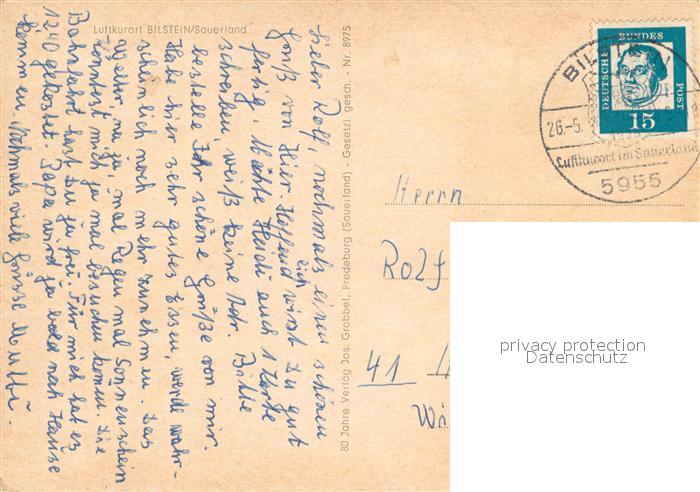 Luftkurort BILSTEIN/Sauerland
Lieber Rolf, nochmals einen schönen
Gruß von Hier. Hoffendlich wirst Du gut
fertig. Möchte Heidi auch 1 Karte
schreiben, weiß keine Adr. Bitte
bestelle Ihr schöne Grüße von mir.
Habe hier sehr gutes Essen, werde wahr-
scheinlich noch mehr zunehmen. Das
Wetter, na ja, mal Regen mal Sonnenschein
könntest mich ja mal besuchen kommen. Die
Bahnfahrt hast Du ja frei. Für mich hat es
1240 gekostet. Papa wird ja bald nach Hause
kommen. Nochmals viele Grüsse Mutti.
80 Jahre Verlag Jos. Grobbel, Fredeburg (Sauerland) - Gesetzl. gesch. - Nr. 8975
DEUTSCHE BUNDES POST
15
26.-5.
Luftkurort im Sauerland
5955
Herrn
Rolf
41
privacy protection
Datenschutz